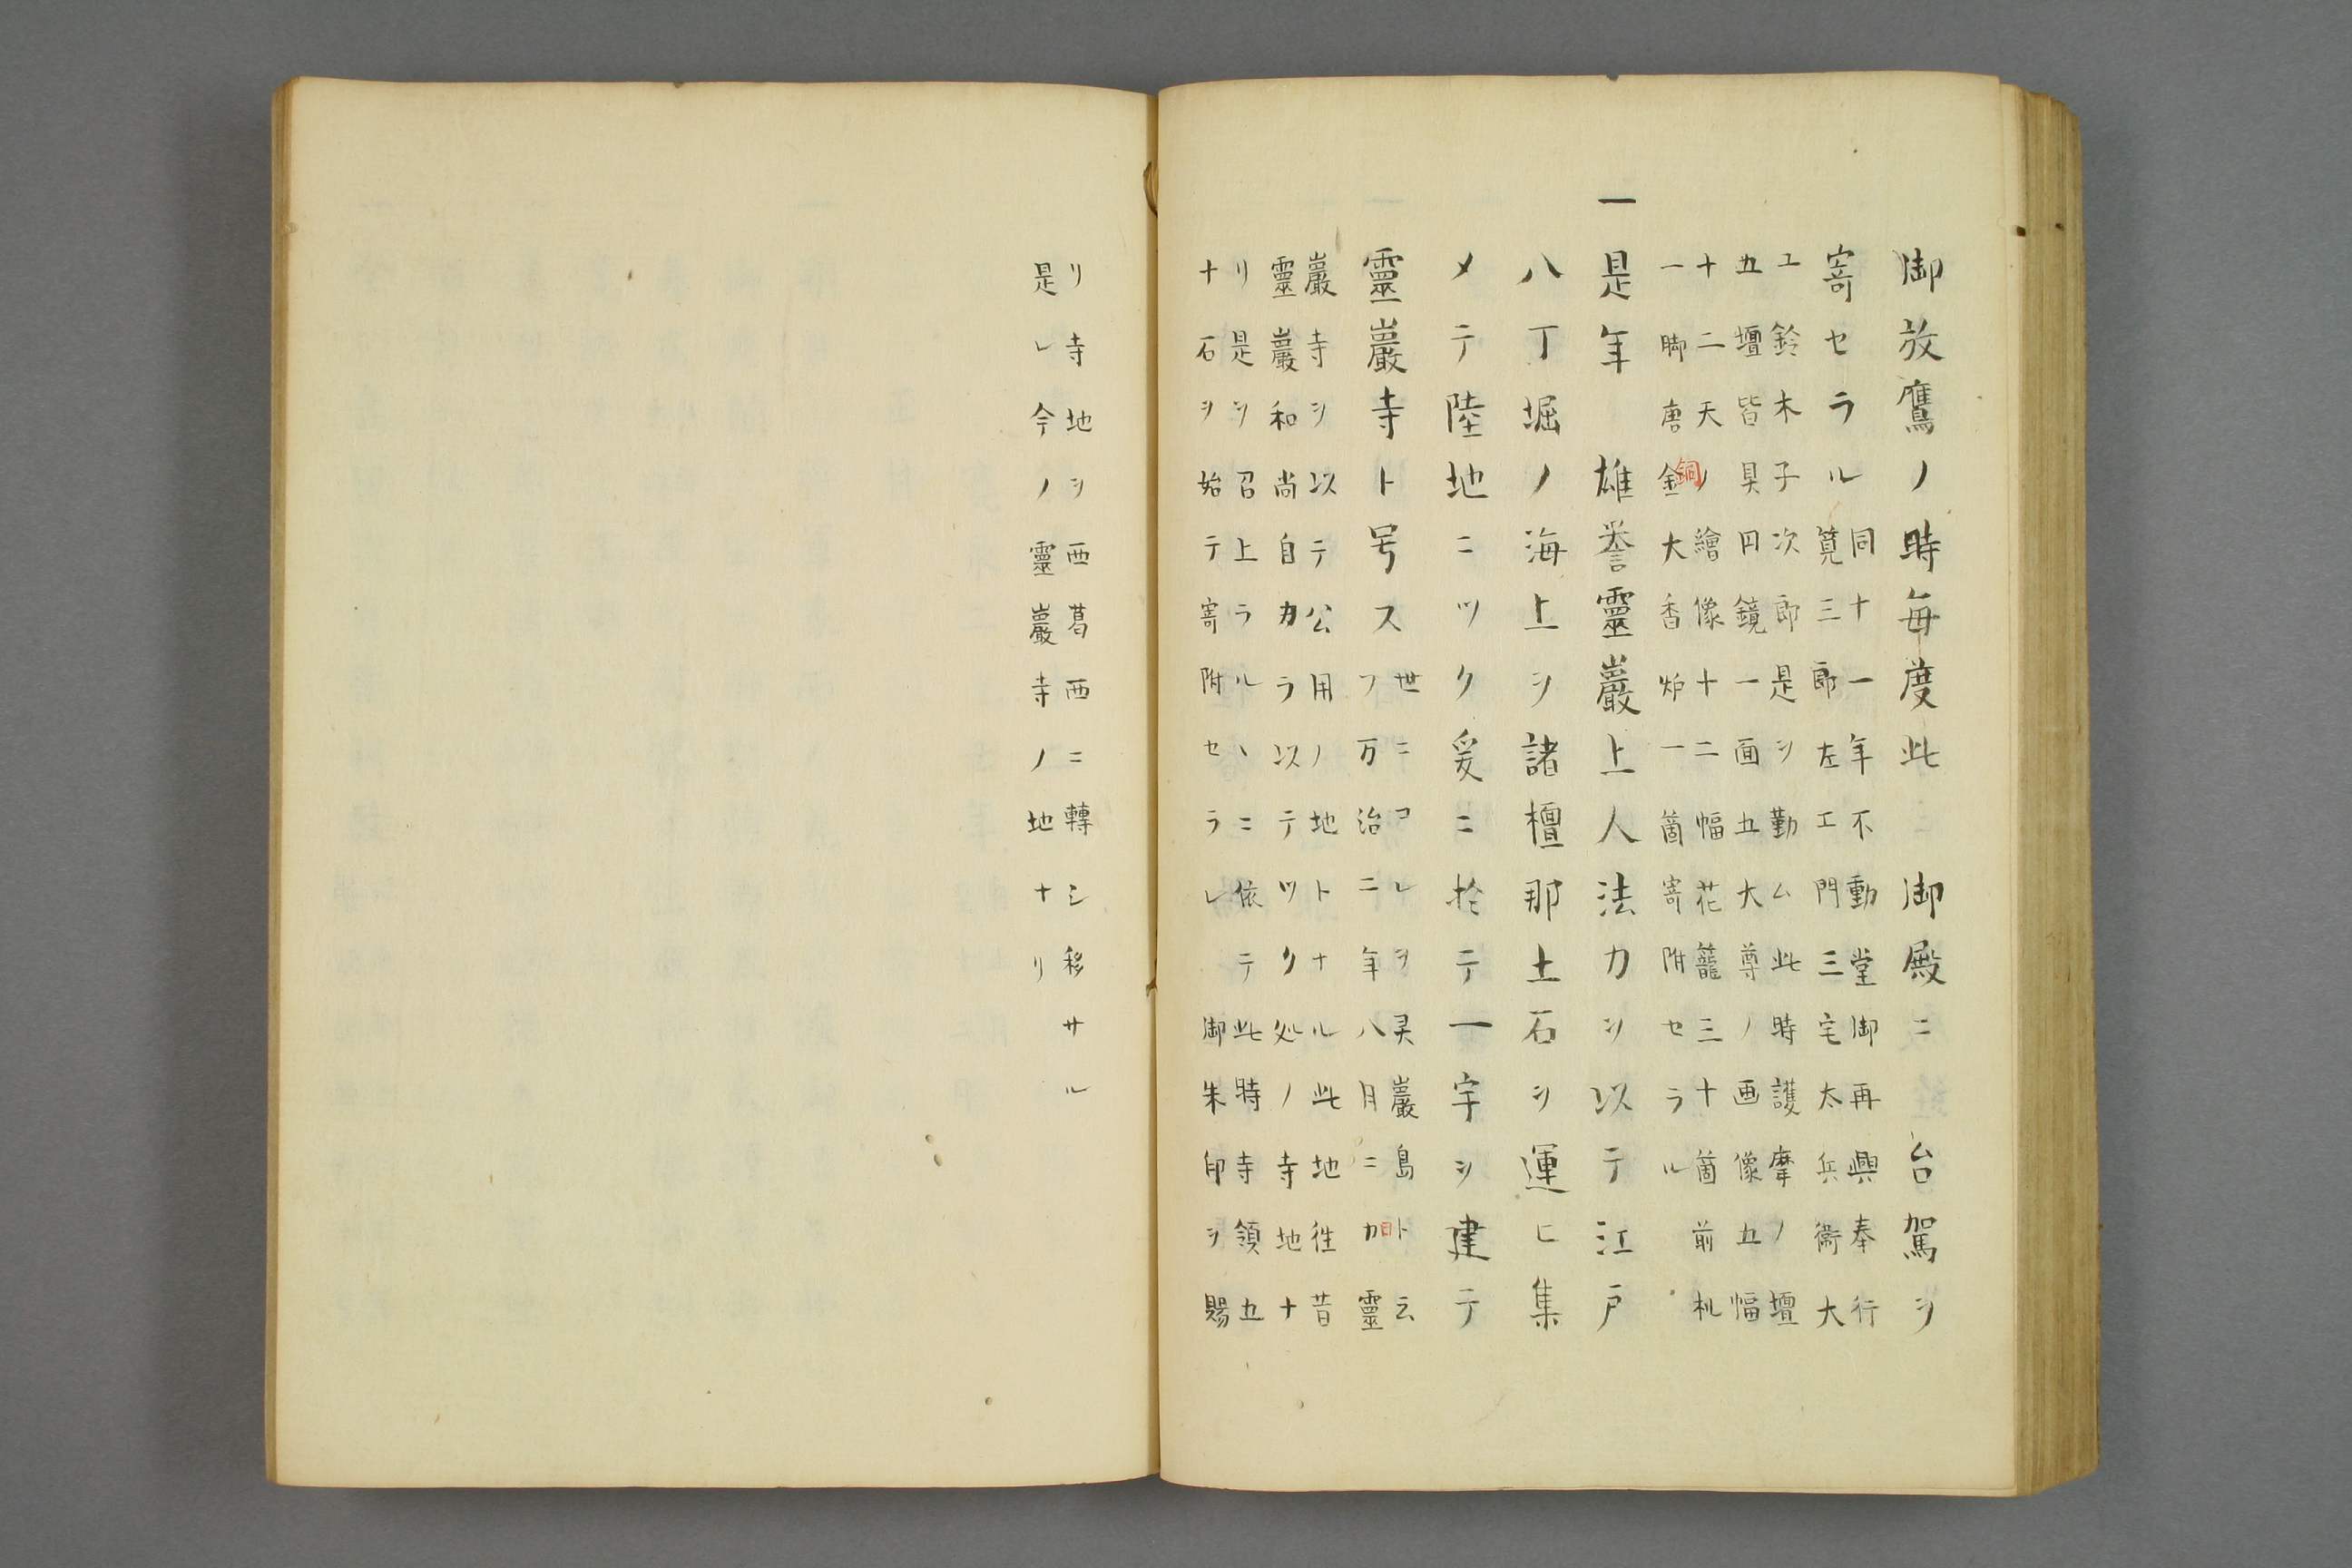 御放鷹ノ時毎度此御殿ニ台駕ヲ
寄セラル
同十一年不動堂御再興奉行
筧三郎左エ門三宅太兵衛大
エ鈴木子次郎是ヲ勤ム此時護摩ノ壇
五壇皆具円鏡一面五大尊ノ画像五幅
十二天ノ繪像十二幅花籠三十箇前机
一脚唐金大香炉一箇寄附セラル
銅
一是年雄誉靈巖上人法力ヲ以テ江戸
八丁堀ノ海上ヲ諸檀那土石ヲ運ヒ集
メテ陸地ニツク爰ニ於テ一宇ヲ建テ
靈巖寺ト号ス
世ニコレヲ灵巖島ト云
フ万治二年八月ニカ靈
日
巖寺ヲ以テ公用ノ地トナル此地往昔
靈巖和尚自カラ以テツク処ノ寺地ナ
リ是ヲ召上ラルヽニ依テ此時寺領五
十石ヲ始テ寄附セラレ御朱印ヲ賜
リ寺地ヲ西葛西ニ轉シ移サル
是レ今ノ靈巖寺ノ地ナリ